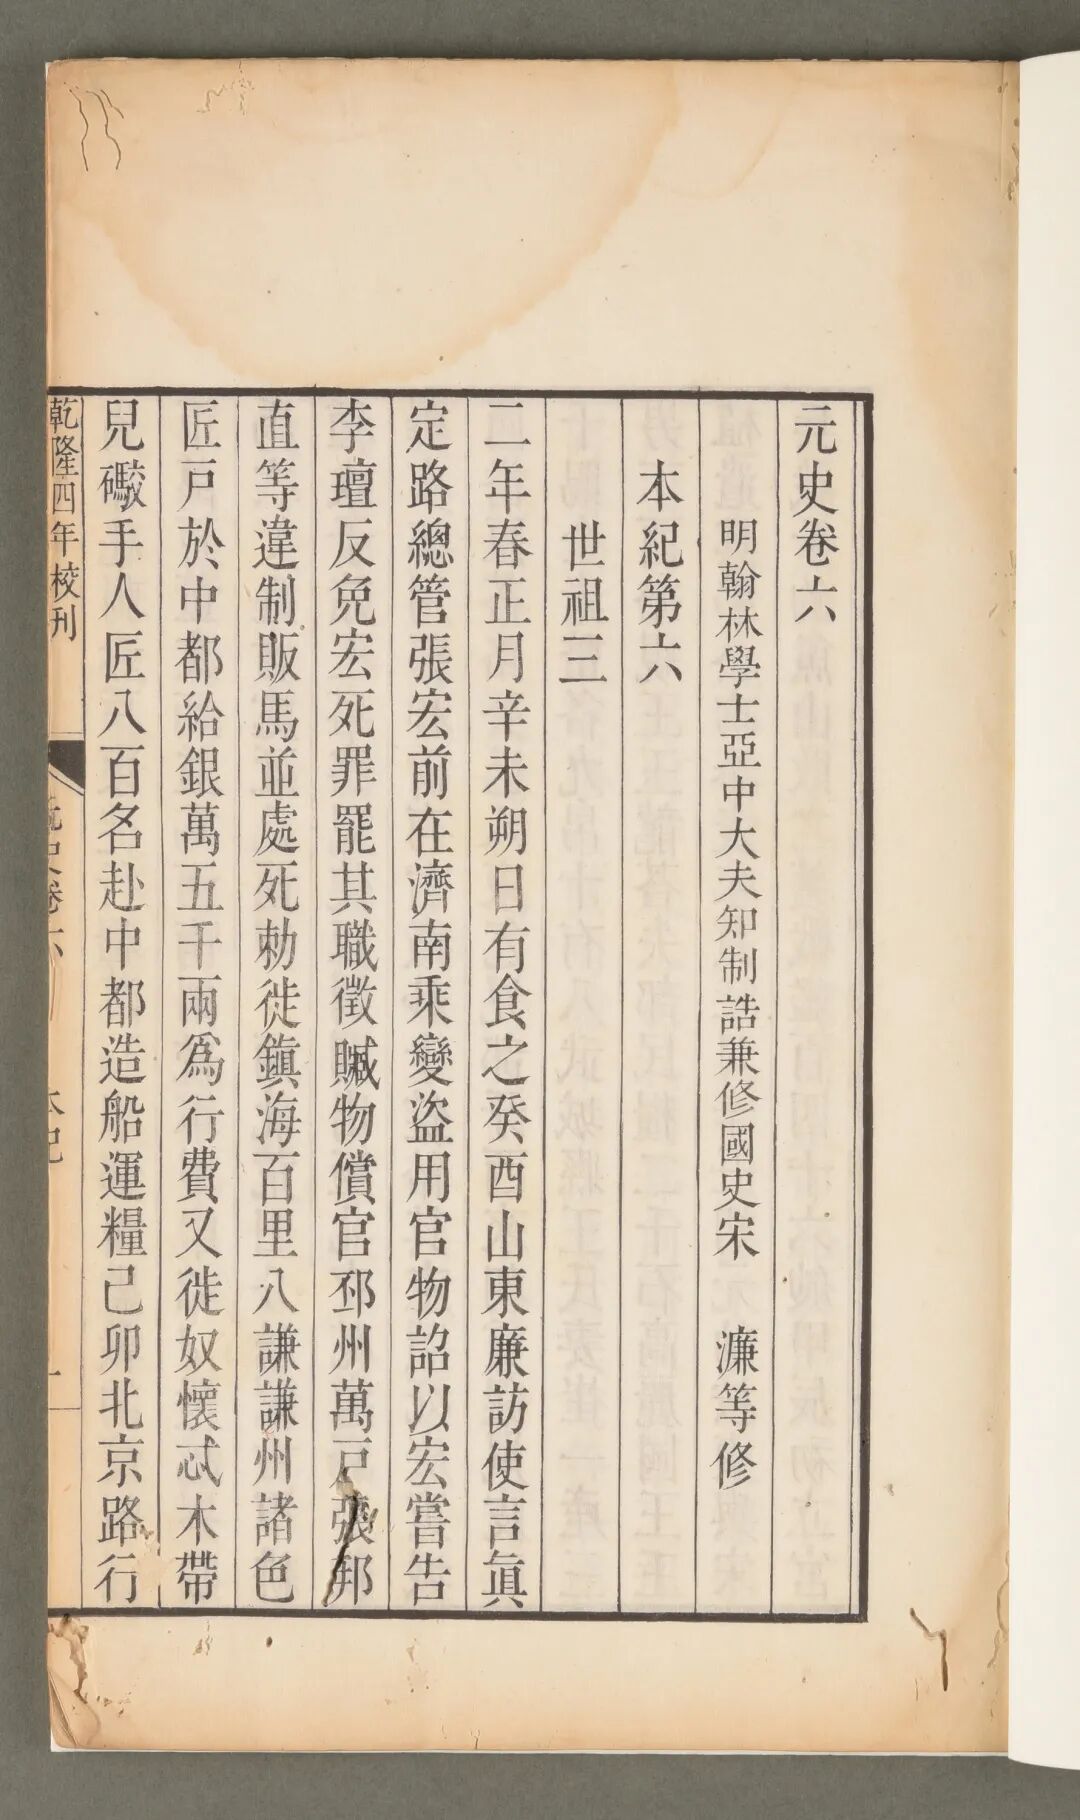 元史卷六
明翰林學士亞中大夫知制誥兼修國史宋 濂等修
本紀第六
世祖三
二年春正月辛未朔日有食之癸酉山東廉訪使言眞
定路總管張宏前在濟南乘變盜用官物詔以宏嘗告
李璮反免宏死罪罷其職徵贓物償官邳州萬戸張邦
直等違制販馬並處死勅徙鎭海百里八謙謙州諸色
匠戸於中都給銀萬五千兩爲行費又徙奴懷忒木帶
兒礮手人匠八百名赴中都造船運糧己卯北京路行
乾隆四年校刊
元史卷六 本紀 一